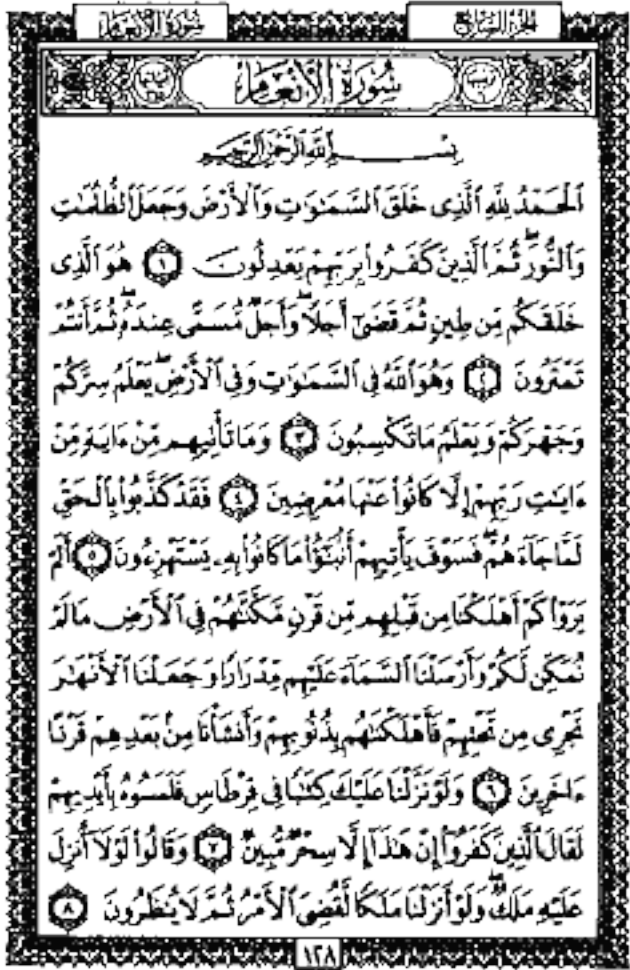 سُورَةُ الأَنْعَامِ الجُزْءُ السَّابِعُ
سُورَةُ الأَنْعَامِ
بِسْمِ ٱللَّهِ ٱلرَّحْمَٰنِ ٱلرَّحِيمِ
ٱلْحَمْدُ لِلَّهِ ٱلَّذِى خَلَقَ ٱلسَّمَٰوَٰتِ وَٱلْأَرْضَ وَجَعَلَ ٱلظُّلُمَٰتِ
وَٱلنُّورَۖ ثُمَّ ٱلَّذِينَ كَفَرُوا۟ بِرَبِّهِمْ يَعْدِلُونَ ١ هُوَ ٱلَّذِى
خَلَقَكُم مِّن طِينٍ ثُمَّ قَضَىٰٓ أَجَلًاۖ وَأَجَلٌ مُّسَمًّى عِندَهُۥۖ ثُمَّ أَنتُمْ
تَمْتَرُونَ ٢ وَهُوَ ٱللَّهُ فِى ٱلسَّمَٰوَٰتِ وَفِى ٱلْأَرْضِۖ يَعْلَمُ سِرَّكُمْ
وَجَهْرَكُمْ وَيَعْلَمُ مَا تَكْسِبُونَ ٣ وَمَا تَأْتِيهِم مِّنْ ءَايَةٍ مِّنْ
ءَايَٰتِ رَبِّهِمْ إِلَّا كَانُوا۟ عَنْهَا مُعْرِضِينَ ٤ فَقَدْ كَذَّبُوا۟ بِٱلْحَقِّ
لَمَّا جَآءَهُمْۖ فَسَوْفَ يَأْتِيهِمْ أَنۢبَٰٓؤُا۟ مَا كَانُوا۟ بِهِۦ يَسْتَهْزِءُونَ ٥ أَلَمْ
يَرَوْا۟ كَمْ أَهْلَكْنَا مِن قَبْلِهِم مِّن قَرْنٍ مَّكَّنَّٰهُمْ فِى ٱلْأَرْضِ مَا لَمْ
نُمَكِّن لَّكُمْ وَأَرْسَلْنَا ٱلسَّمَآءَ عَلَيْهِم مِّدْرَارًا وَجَعَلْنَا ٱلْأَنْهَٰرَ
تَجْرِى مِن تَحْتِهِمْ فَأَهْلَكْنَٰهُم بِذُنُوبِهِمْ وَأَنشَأْنَا مِنۢ بَعْدِهِمْ قَرْنًا
ءَاخَرِينَ ٦ وَلَوْ نَزَّلْنَا عَلَيْكَ كِتَٰبًا فِى قِرْطَاسٍ فَلَمَسُوهُ بِأَيْدِيهِمْ
لَقَالَ ٱلَّذِينَ كَفَرُوٓا۟ إِنْ هَٰذَآ إِلَّا سِحْرٌ مُّبِينٌ ٧ وَقَالُوا۟ لَوْلَآ أُنزِلَ
عَلَيْهِ مَلَكٌۖ وَلَوْ أَنزَلْنَا مَلَكًا لَّقُضِىَ ٱلْأَمْرُ ثُمَّ لَا يُنظَرُونَ ٨
١٢٨